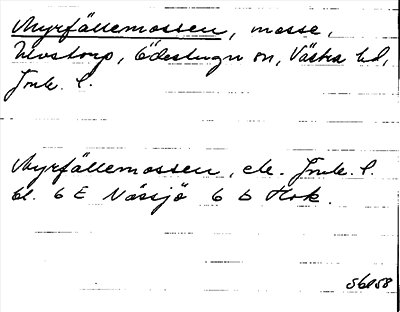 Myrfällemossen, mosse,
Ulvstorp, Ödestugu sn, Västra hd,
Jönk. l.
Myrfällemossen, ek. Jönk. l.
bl. 6 E Nässjö 6 b Hok.